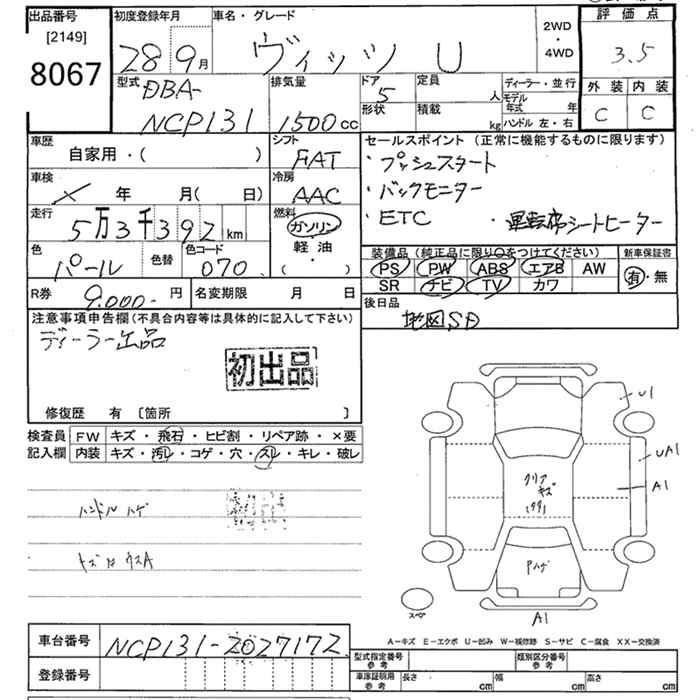 出品番号
[2149]
8067
初度登録年月
28 9月
車名・グレード
ヴィッツ U
2WD
・
4WD
評価点
3.5
外装 内装
C C
型式
DBA-
NCP131
排気量
1500cc
ドア
5
形状
定員
人
積載
kg
ディーラー・並行
モデル年式 年
ハンドル 左・右
車歴
自家用・( )
シフト
FAT
セールスポイント (正常に機能するものに限ります)
・プッシュスタート
・バックモニター
・ETC ・運転席シートヒーター
車検
× 年 月( 日)
冷房
AAC
走行
5万3千392km
燃料
ガソリン
軽油
( ・ )
色
パール
色替
色コード
070
装備品 (純正品に限り○をつけてください)
PS PW ABS エアB AW
SR ナビ TV カワ
新車保証書
有・無
R券 9,000- 円
名変期限 月 日
後日品
地図SD
注意事項申告欄(不具合内容等は具体的に記入して下さい)
ディーラー出品
初出品
修復歴 有 〔箇所 〕
検査員
記入欄
FW キズ・飛石・ヒビ割・リペア跡・×要
内装 キズ・汚レ・コゲ・穴・スレ・キレ・破レ
ハンドル ハゲ
U1
UA1
A1
クリア
キズ
Pハゲ
スペア
A1
A-キズ E-エクボ U-凹み W-補修跡 S-サビ C-腐食 XX-交換済
車台番号 NCP131-2027172
登録番号
型式指定番号
参考
類別区分番号
参考
車庫証明用
参考
長さ cm 幅 cm 高さ cm